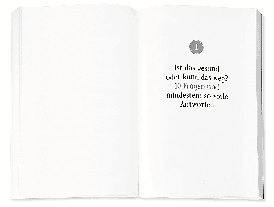 Ist das gesund
oder kann das weg?
Fragen und
mindestens so viele
Antworten